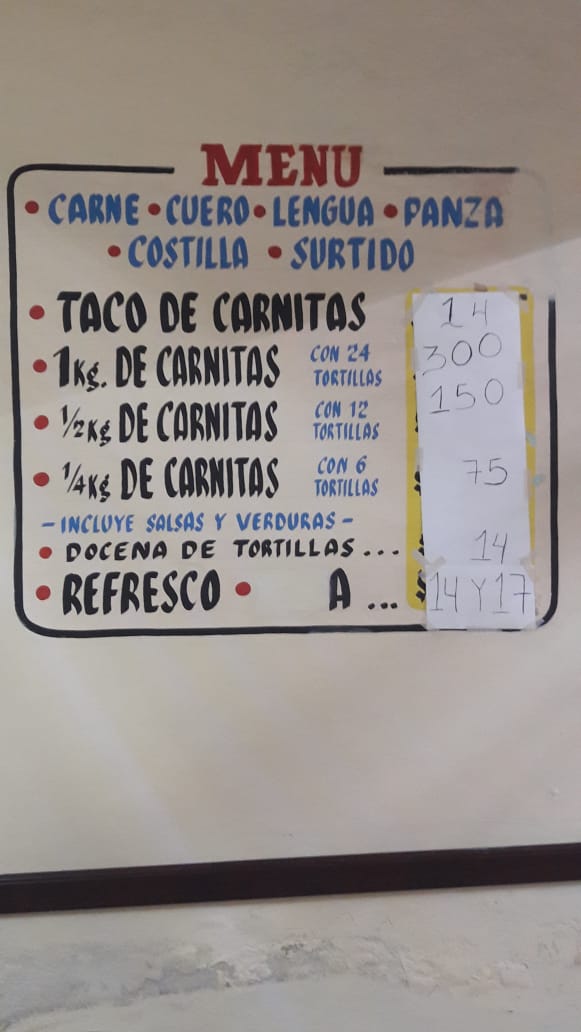 MENU
• CARNE • CUERO • LENGUA • PANZA
• COSTILLA • SURTIDO
• TACO DE CARNITAS 14
• 1Kg. DE CARNITAS CON 24 TORTILLAS 300
• 1/2Kg DE CARNITAS CON 12 TORTILLAS 150
• 1/4Kg DE CARNITAS CON 6 TORTILLAS $ 75
- INCLUYE SALSAS Y VERDURAS -
• DOCENA DE TORTILLAS... $ 14
• REFRESCO • A ... $ 14 Y 17